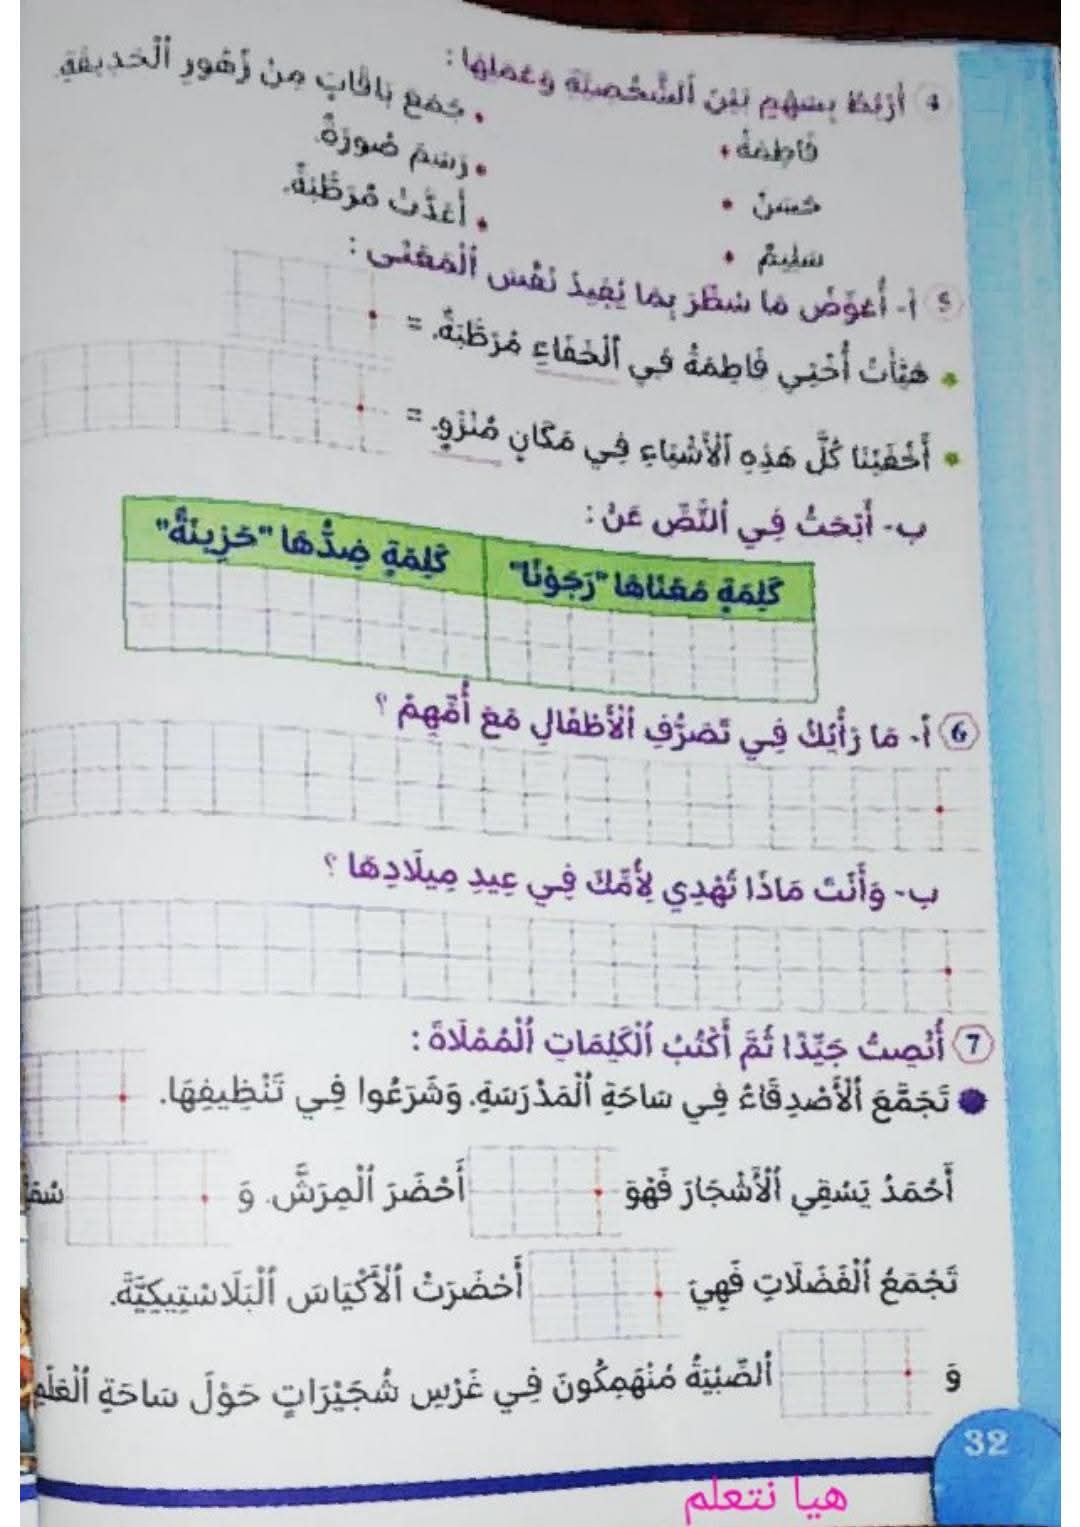 4 أَرْبِطُ بِسَهْمٍ بَيْنَ ٱلشَّخْصِيَّةِ وَعَمَلِهَا :
فَاطِمَةُ • • جَمَعَ بَاقَاتٍ مِنْ زُهُورِ ٱلْحَدِيقَةِ.
حَسَنٌ • • رَسَمَ صُورَةً.
سَلِيمٌ • • أَعَدَّتْ مُرَطَّبَةً.
5 أ- أُعَوِّضُ مَا سُطِّرَ بِمَا يُفِيدُ نَفْسَ ٱلْمَعْنَى :
هَيَّأَتْ أُخْتِي فَاطِمَةُ فِي ٱلْخَفَاءِ مُرَطَّبَةً. =
أَخْفَيْنَا كُلَّ هَذِهِ ٱلْأَشْيَاءِ فِي مَكَانٍ مُنْزَوٍ. =
ب- أَبْحَثُ فِي ٱلنَّصِّ عَنْ :
كَلِمَةٍ مَعْنَاهَا "رَجَوْنَا" كَلِمَةٍ ضِدُّهَا "حَزِينَةً"
6 أ- مَا رَأْيُكَ فِي تَصَرُّفِ ٱلْأَطْفَالِ مَعَ أُمِّهِمْ ؟
ب- وَأَنْتَ مَاذَا تُهْدِي لِأُمِّكَ فِي عِيدِ مِيلَادِهَا ؟
7 أُنْصِتُ جَيِّدًا ثُمَّ أَكْتُبُ ٱلْكَلِمَاتِ ٱلْمُمْلَاةَ :
تَجَمَّعَ ٱلْأَصْدِقَاءُ فِي سَاحَةِ ٱلْمَدْرَسَةِ. وَشَرَعُوا فِي تَنْظِيفِهَا.
أَحْمَدُ يَسْقِي ٱلْأَشْجَارَ فَهْوَ أَحْضَرَ ٱلْمِرَشَّ. وَ
تَجْمَعُ ٱلْفَضَلَاتِ فَهِيَ أَحْضَرَتْ ٱلْأَكْيَاسَ ٱلْبَلَاسْتِيكِيَّةَ.
وَ ٱلصِّبْيَةُ مُنْهَمِكُونَ فِي غَرْسِ شُجَيْرَاتٍ حَوْلَ سَاحَةِ ٱلْعَلَمِ
32
هيا نتعلم